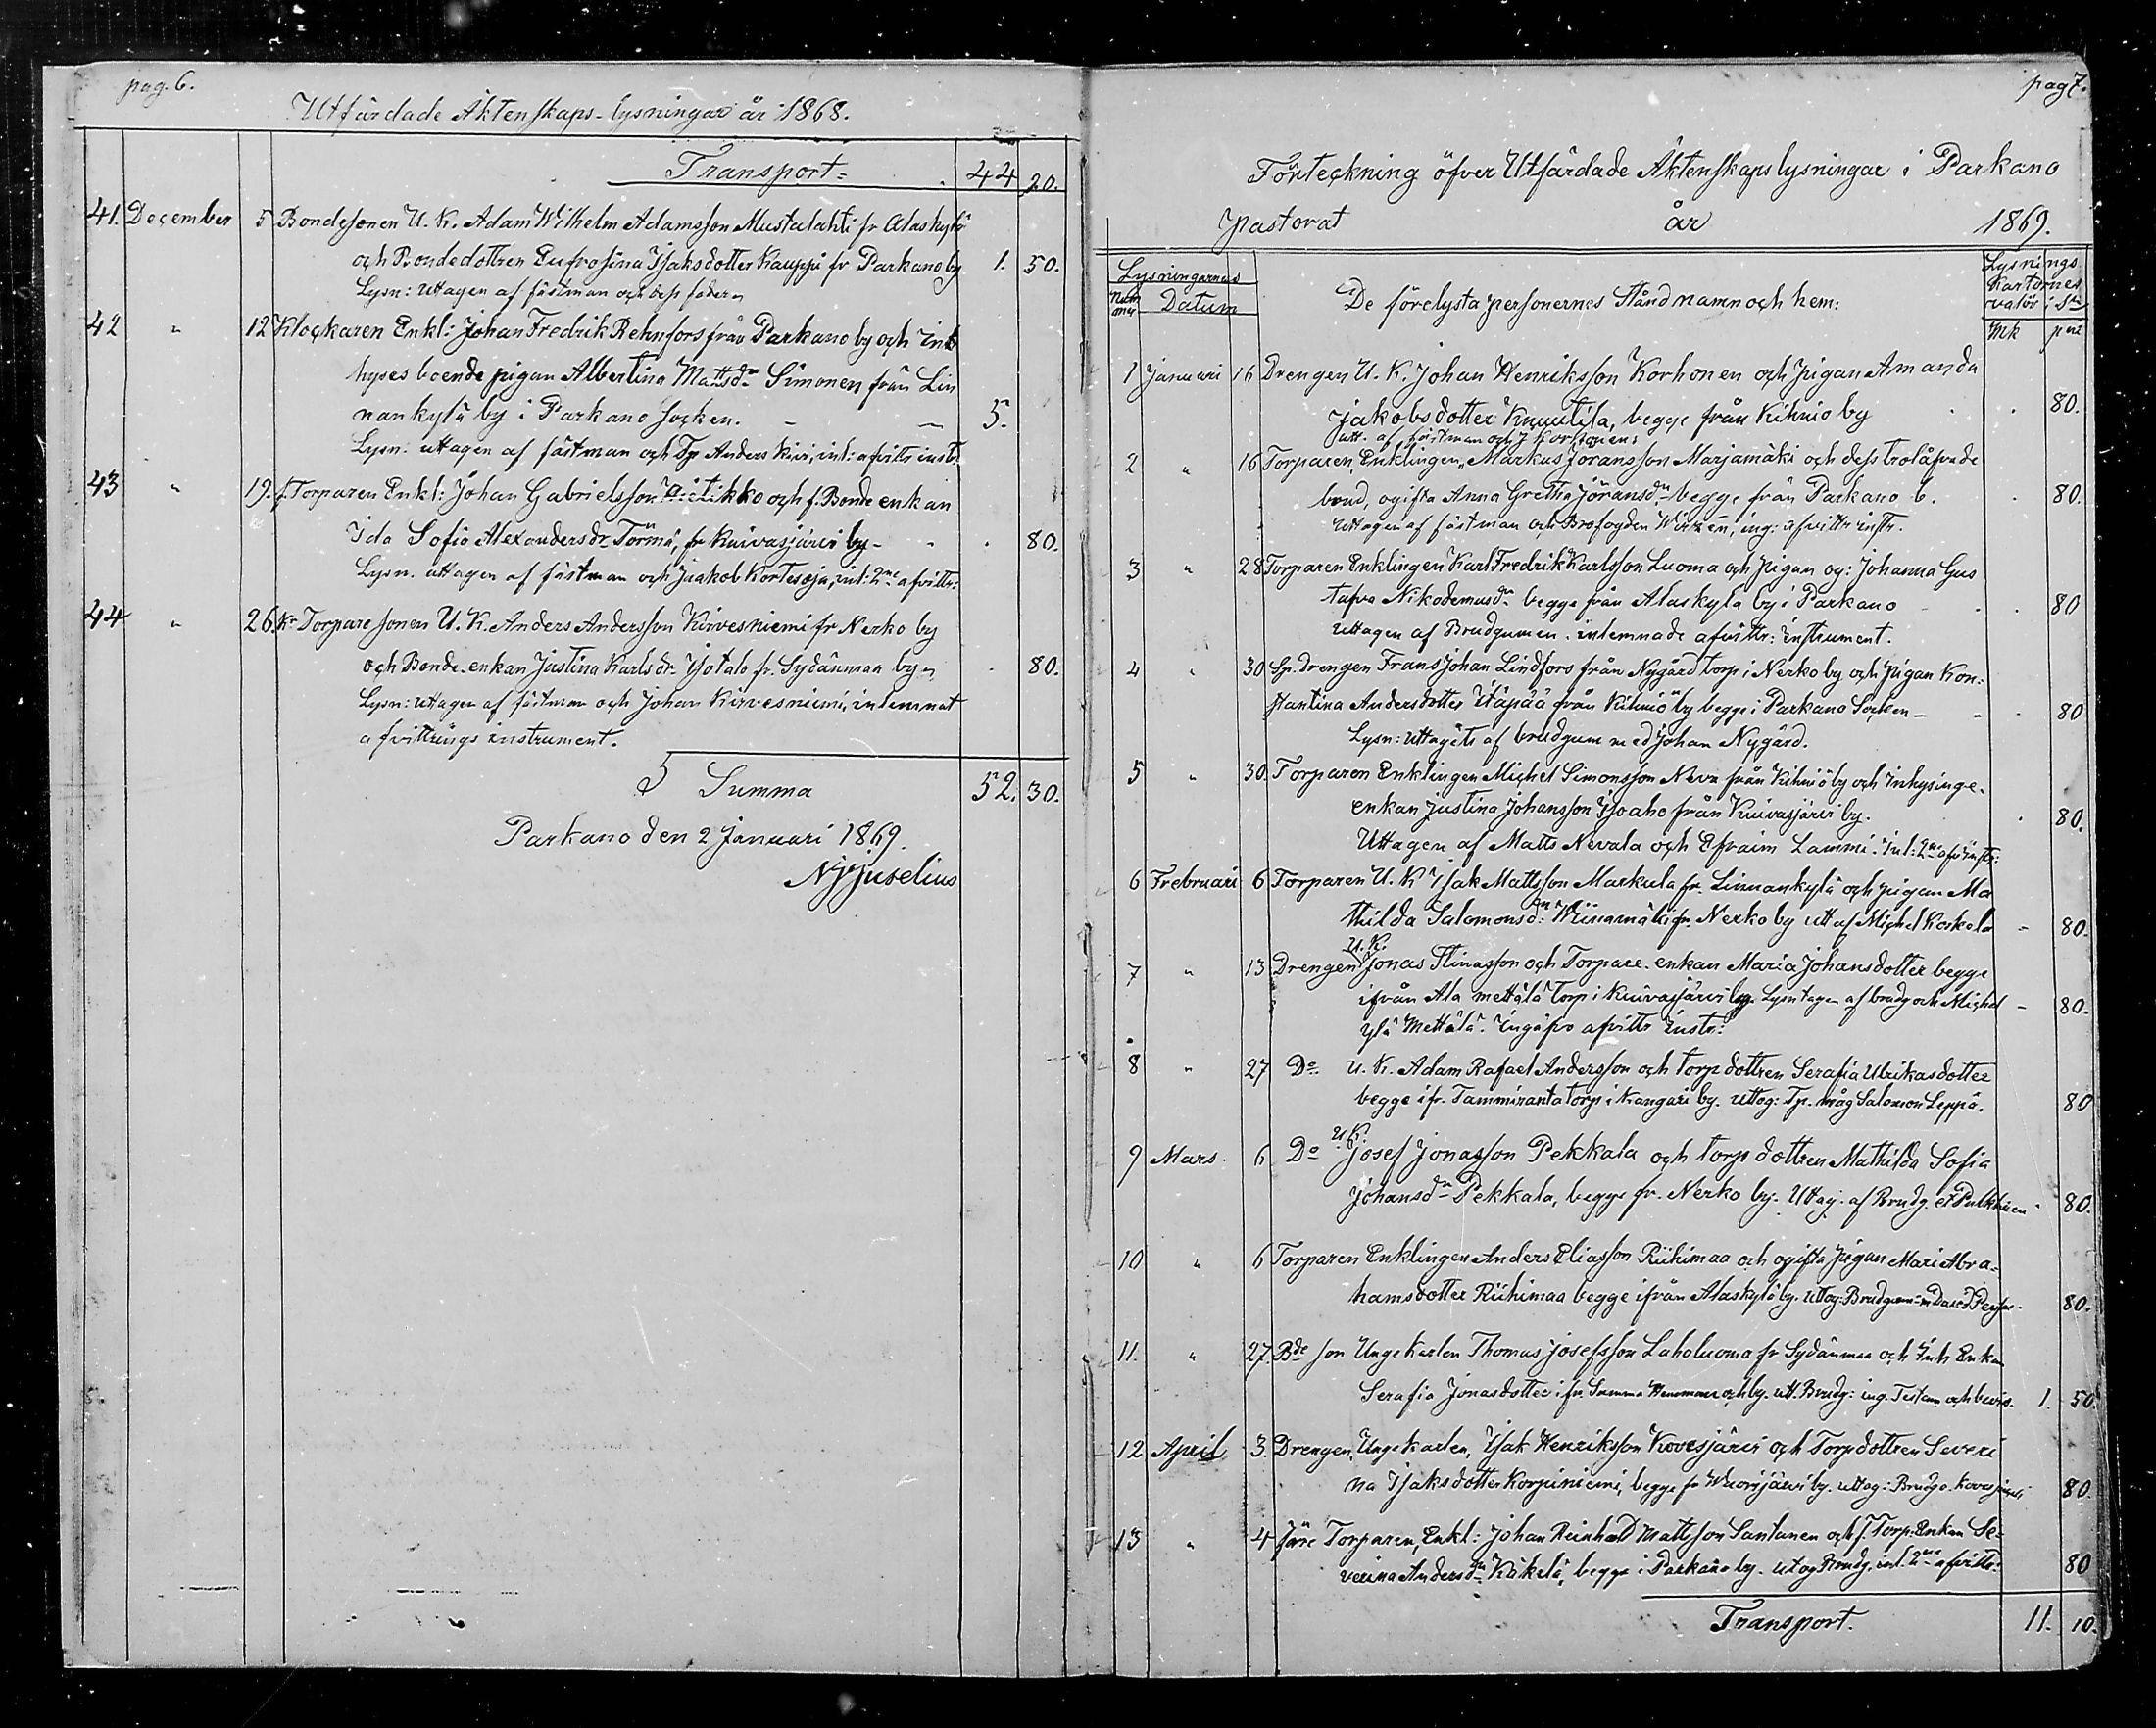 pag. 6.
Utfärdade Äktenskaps-lysningar år 1868.
Transport= 44 20.
41. December 5 Bondesonen U. K. Adam Wilhelm Adamsson Mustalahti fr Alaskylä
och Bondedottren Eufrosina Isaksdotter Kauppi fr Parkano by 1. 50.
Lysn: uttagen af fästman och dess fader
42 " 12 Klockaren Enkl: Johan Fredrik Rehnfors från Parkano by och Inh
hyses boende pigan Albertina Mattsdr Simonen från Lin
nankylä by i Parkano socken. - - 5.
Lysn: uttagen af fästman och Tp Anders Kivi, inl: afvittr instr:
43 " 19. f. Torparen Enkl: Johan Gabrielsson Pietikko och f. Bonde enkan
Ida Sofia Alexandersdr Törmä, fr Kuivasjärvi by - - . 80.
Lysn. uttagen af fästman och Jaakob Kortesoja, inl: 2ne afvittr:
44 " 26. Kr Torpare sonen U. K. Anders Andersson Kirvesniemi fr Nerko by
och Bonde-enkan Justina Karlsdr Isotalo fr. Sydänmaa by - . 80.
Lysn: uttagen af fästman och Johan Kirvesniemi, inlemnat
afvittrings instrument.
Summa 52. 30.
Parkano den 2 Januari 1869.
Njjuselius
pag 7.
Förteckning öfver Utfärdade Äktenskapslysningar i Parkano
Pastorat år 1869.
Lysningarnes
Num
mer Datum
De förelysta personernes Stånd namn och hem:
Lysnings
Kartornes
valör i Sr
Mk pni
1 Januari 16 Drengen U. K. Johan Henriksson Korhonen och Pigan Amanda
Jakobsdotter Knuutila, begge från Kihniö by . . 80.
utt. af fästman och J Korhonen:
2 " 16 Torparen, Enklingen, Markus Göransson Marjamäki och dess trolofvade
brud, ogifta Anna Gretha Göransdr begge från Parkano b. . 80.
Uttagen af fästman och Brofogden Wirzén, ing: afvittr instr.
3 " 28 Torparen Enklingen Karl Fredrik Karlsson Luoma och Pigan og: Johanna Gus
tafva Nikodemusdr begge från Alaskylä by i Parkano - . . 80
Uttagen af Brudgumen. inlemnade afvittr: instrument.
4 " 30 Sp. drengen Frans Johan Lindfors från Nygård torp i Nerko by och Pigan Kon-
stantina Andersdotter Itäpää från Kihniö by begge i Parkano Socken - - . 80
Lysn: uttagits af brudgum med Johan Nygård.
5 " 30. Torparen Enklingen Michel Simonsson Neva från Kihniö by och Inhysinge-
enkan Justina Johansson Isoaho från Kuivasjärvi by. . 80.
Uttagen af Matts Nevala och Efraim Lammi. Inl: 2ne afv instr:
6 Frebruari 6 Torparen U. K Isak Mattsson Markula fr. Linnankylä och pigan Ma
thilda Salomonsdr: Wiinamäki fr. Nerko by utt af Michel Koskela - 80.
7 " 13 Drengen U. K. Jonas Stinasson och Torpare-enkan Maria Johansdotter begge
ifrån Ala mettälä torp i Kuivasjärvi by. Lysn tagen af brudg och Michel - 80.
Ylä Mettälä. Ingåfvo afvittr Instr:
8 " 27 Do U. K. Adam Rafael Andersson och torp dottren Serafia Ulrikasdotter
begge ifr. Tammiranta torp i Kangari by. uttog: Tp. måg Salomon Leppä. 80
9 Mars. 6 Do U. K. Josef Jonasson Pekkala och torp dottren Mathilda Sofia
Johansdr Pekkala, begge fr. Nerko by. Uttag. af Brudg. et Pulkkinen 80.
10 " 6 Torparen Enklingen Anders Eliasson Riihimaa och ogifta Pigan Mari Abra-
hamsdotter Riihimaa begge ifrån Alaskylä by. uttog: Brudgum 80.
11. " 27. Bde son Ungekarlen Thomas Josefsson Laholuoma fr Sydänmaa och Inh Enkan
Serafia Jonasdotter ifr Samma Hemman och by. utt. Brudg: ing. Testam och bevis. 1. 50
12 April 3. Drengen, Ungekarlen, Isak Henriksson Kovesjärvi och Torpdottren Severi
na Isaksdotter Korpiniemi, begge fr Wuorijärvi by. uttog: Brudg o. Kovesjärvi 80.
13 " 4 före Torparen, Enkl: Johan Reinhold Mattsson Santanen och f. Torp: Enkan Se-
verina Andersdr Käkelä, begge i Parkano by. uttog Brudg. inl. 2ne afvittr: 80
Transport. 11. 10.